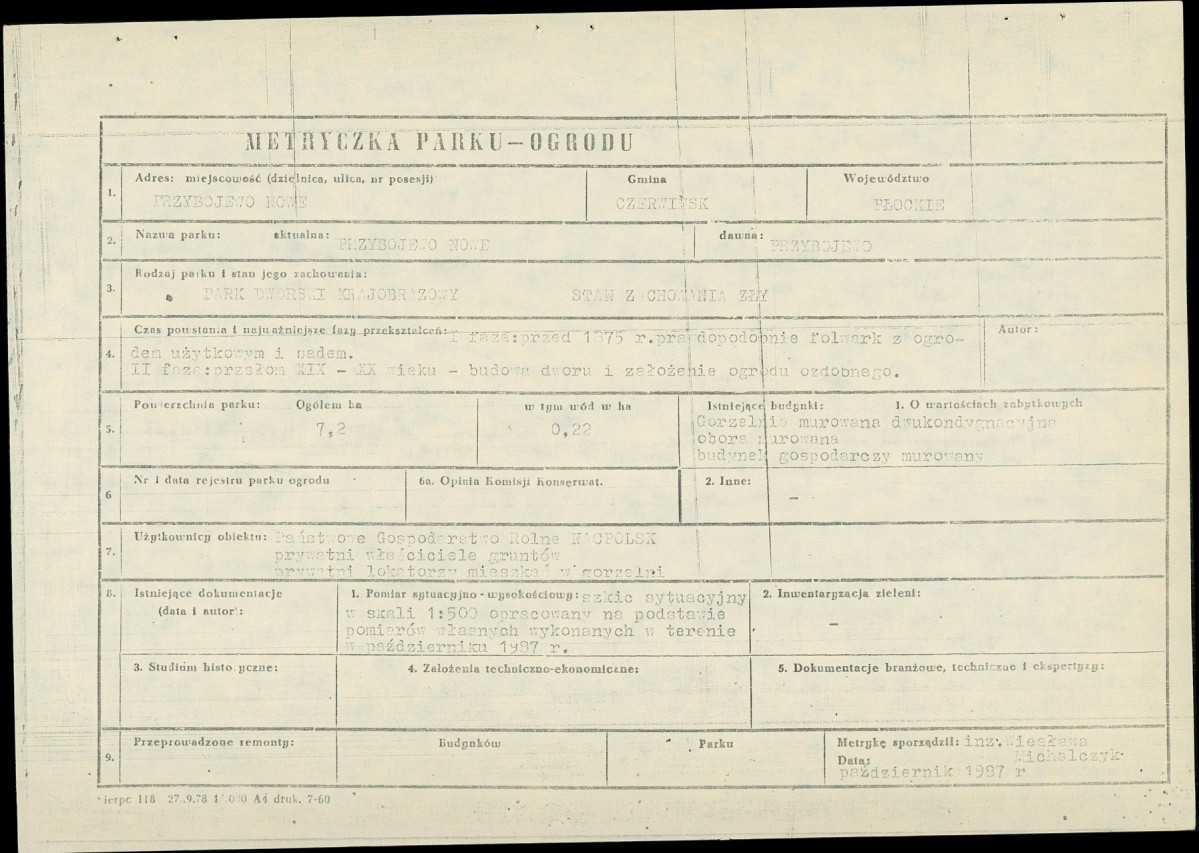 METRYCZKA PARKU — OGRODU
1. Adres: miejscowość (dzielnica, ulica, nr posesji) Gmina Województwo
PRZYBOJEWO NOWE CZERWIŃSK PŁOCKIE
2. Nazwa parku: aktualna: PRZYBOJEWO NOWE dawna: PRZYBOJEWO
Rodzaj parku i stan jego zachowania:
3. PARK DWORSKI KRAJOBRAZOWY STAN ZACHOWANIA ZŁY
Czas powstania i najważniejsze fazy przekształceń: I faza:przed 1875 r.prawdopodobnie folwark z ogro- Autor:
4. dem użytkowym i sadem.
II faza:przełom XIX - XX wieku - budowa dworu i założenie ogrodu ozdobnego.
Powierzchnia parku: Ogółem ha w tym wód w ha Istniejące budynki: 1. O wartościach zabytkowych
5. 7,2 0,22 Gorzelnia murowana dwukondygnacyjna
obora murowana
budynek gospodarczy murowany
6 Nr i data rejestru parku ogrodu 6a. Opinia Komisji Konserwat. 2. Inne:
-
7. Użytkownicy obiektu: Państwowe Gospodarstwo Rolne NACPOLSK
prywatni właściciele gruntów
prywatni lokatorzy mieszkań w gorzelni
8. Istniejące dokumentacje 1. Pomiar sytuacyjno - wysokościowy: szkic sytuacyjny 2. Inwentaryzacja zieleni:
(data i autor): w skali 1:500 opracowany na podstawie -
pomiarów własnych wykonanych w terenie
w październiku 1987 r.
3. Studium historyczne: 4. Założenia techniczno-ekonomiczne: 5. Dokumentacje branżowe, techniczne i ekspertyzy:
9. Przeprowadzone remonty: Budynków Parku Metrykę sporządził: inż.Wiesława
Data: Michalczyk
październik 1987 r
A4 druk. 7-60